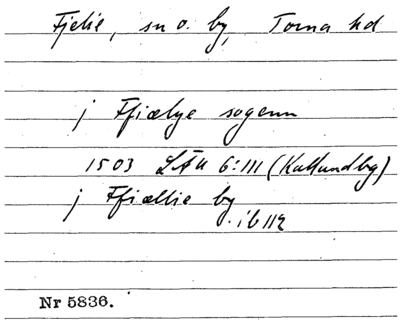 Fjelie, sn o. by, Torna hd
j Ffiælye sogenn
1503 LÅU 6:111 (Kallundbg)
j Ffiællie by
ib 112
Nr 5836.